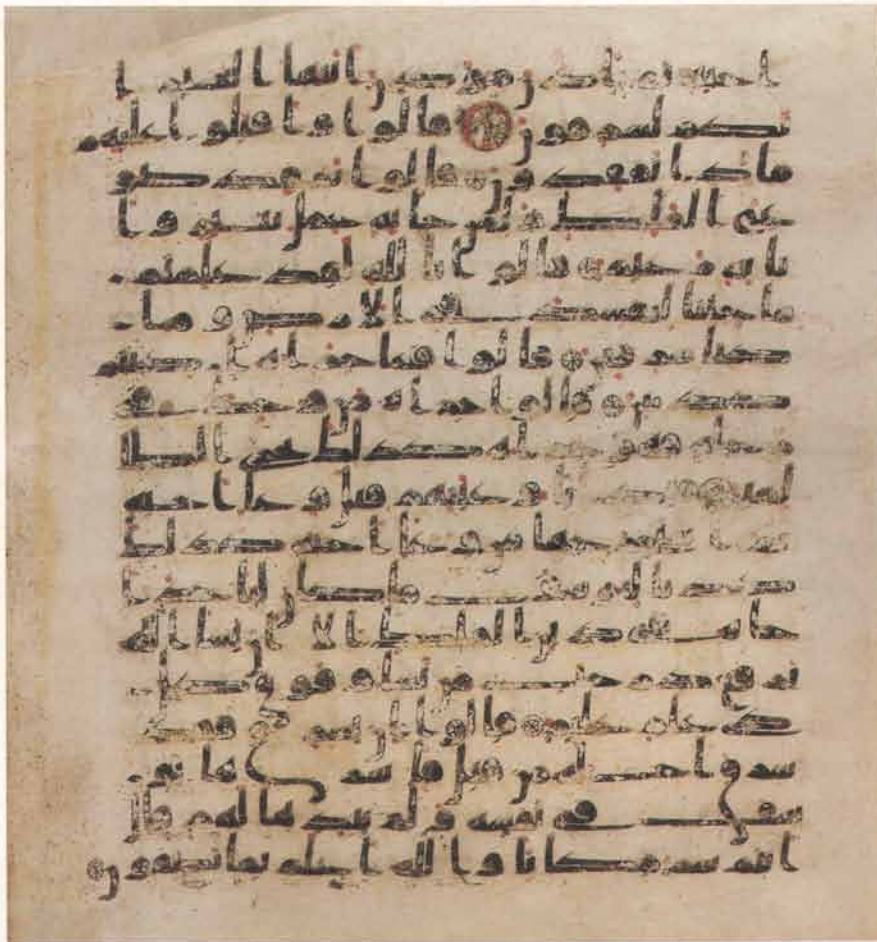 اخيه ثم اذن موذن ايتها العير ا
نكم لسرقون قالوا واقبلوا عليهم
ماذا تفقدون قالوا نفقد صو
ع الملك ولمن جا به حمل بعير وا
نا به زعيم قالوا تالله لقد علمتم
ما جئنا لنفسد في الارض وما
كنا سرقين قالوا فما جزاه ان كنتم
كذبين قالوا جزاه من وجد في
رحله فهو جزاه كذلك نجزي الظا
لمين فبدا باوعيتهم قبل وعا اخيه
ثم استخرجها من وعا اخيه كذلك
كدنا ليوسف ما كان لياخذ ا
خاه في دين الملك الا ان يشا الله
نرفع درجت من نشا وفوق كل
ذي علم عليم قالوا ان يسرق فقد
سرق اخ له من قبل فاسرها يو
سف في نفسه ولم يبدها لهم قال
انتم شر مكانا والله اعلم بما تصفون